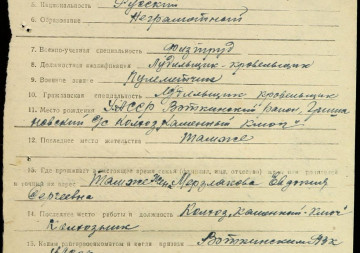 5. Национальность Русский
6. Образование Неграмотный
7. Военно-учетная специальность Физтруд
8. Должностная квалификация Лудильщик-кровельщик
9. Военное звание Пулеметчик
10. Гражданская специальность Лудильщик кровельщик
11. Место рождения УАССР Воткинский район,
с/с Колхоз „Каменный Ключ"
12. Последнее место жительства Там же
13. Где проживает в настоящее время семья
и точный их адрес Там же Жена Евдокия
Сергеевна
14. Последнее место работы и должность Колхоз „Каменный-Ключ"
Колхозник
15. Каким райвоенкоматом и когда призван Воткинским РВК